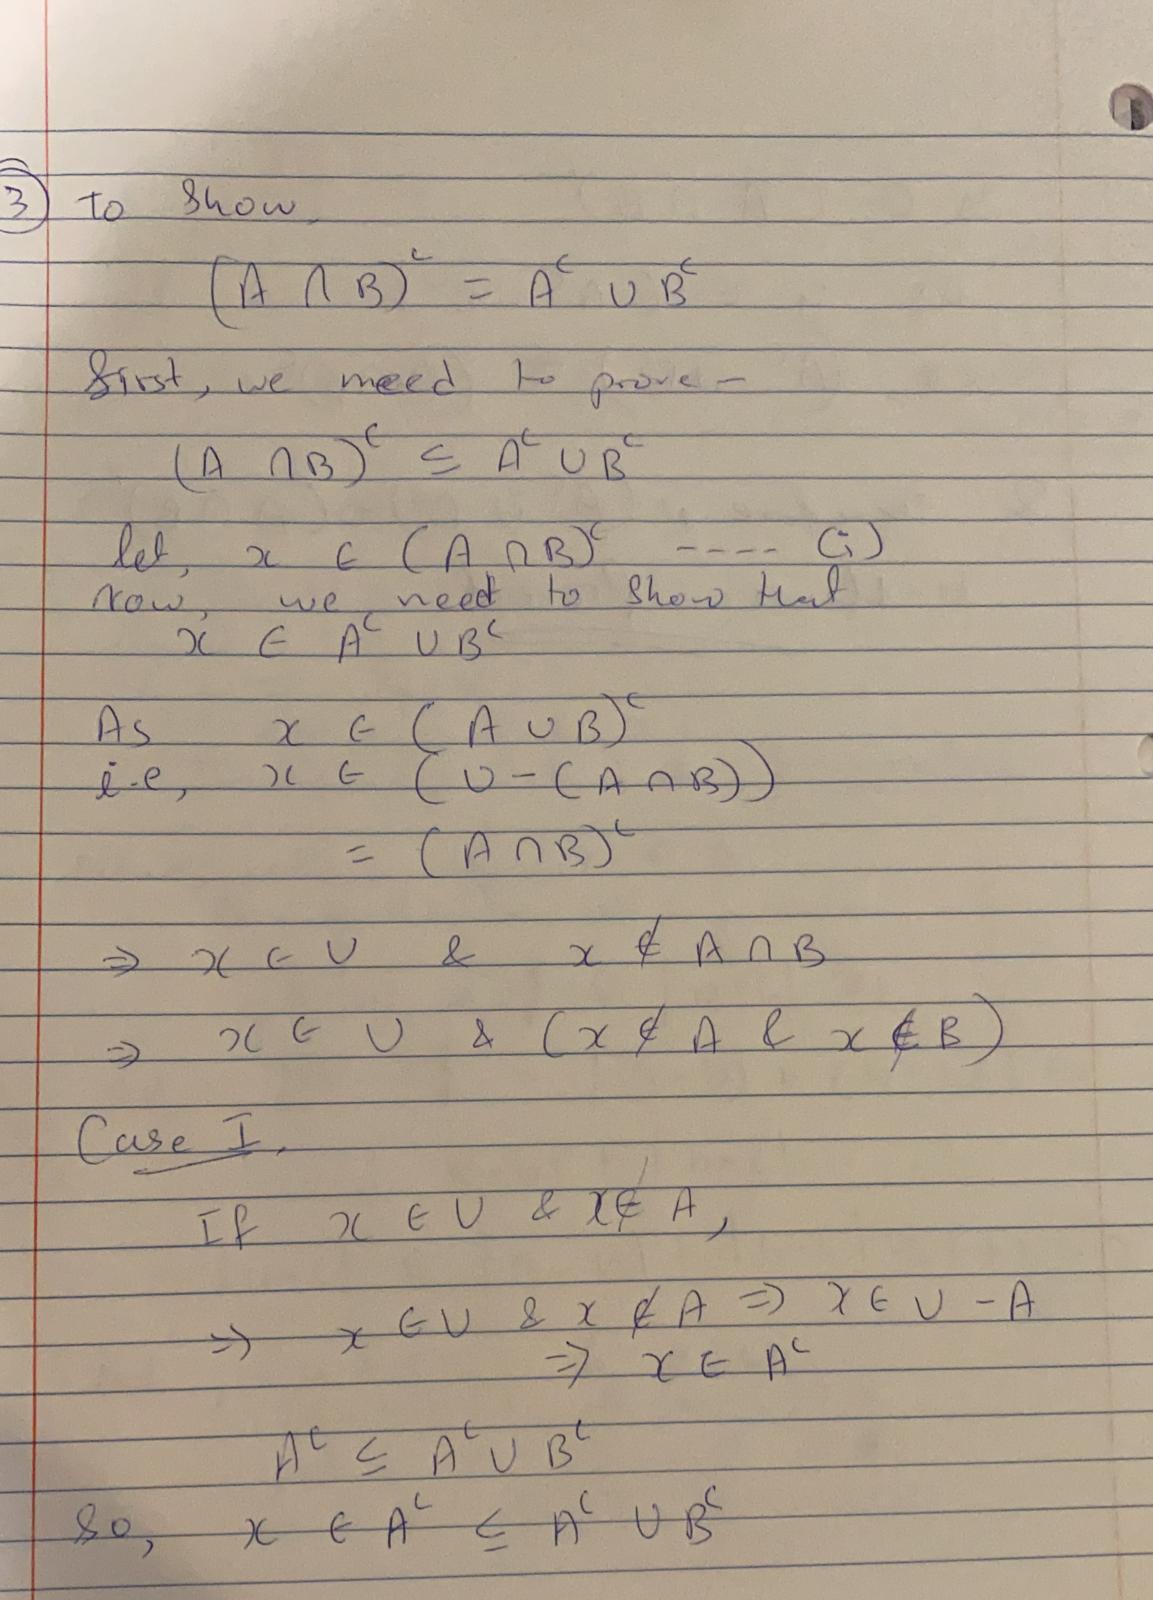 3 To Show,
(A ∩ B)ᶜ = Aᶜ ∪ Bᶜ
first, we need to prove -
(A ∩ B)ᶜ ⊆ Aᶜ ∪ Bᶜ
let, x ∈ (A ∩ B)ᶜ ---- (i)
Now, we need to show that
x ∈ Aᶜ ∪ Bᶜ
As x ∈ (A ∪ B)ᶜ
i.e, x ∈ (U - (A ∩ B))
= (A ∩ B)ᶜ
⇒ x ∈ U & x ∉ A ∩ B
⇒ x ∈ U & (x ∉ A & x ∉ B)
Case I.
If x ∈ U & x ∉ A,
⇒ x ∈ U & x ∉ A ⇒ x ∈ U - A
⇒ x ∈ Aᶜ
Aᶜ ⊆ Aᶜ ∪ Bᶜ
So, x ∈ Aᶜ ⊆ Aᶜ ∪ Bᶜ